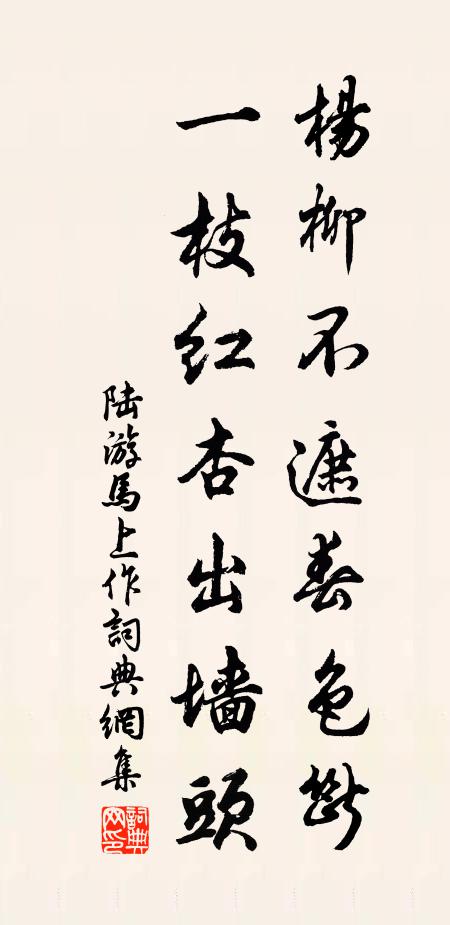 楊柳不遮春色斷
一枝红杏出墻頭
陆游馬上作詞典網集
詞典网印